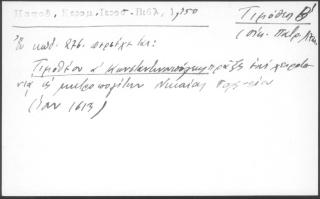 Παπαδ. Κεραμ. Ιεροσ. Βιβλ. 1,350
Τιμόθεος Β΄
(Οἰκ. Πατρ.
Ἐν κωδ. 276. περιέχεται:
Τιμοθέου α΄ Κωνσταντινουπόλεως πρᾶξις ἐπὶ χειροτο-
νίᾳ μητροπολίτου Νικαίας
(Ἰαν 1613)